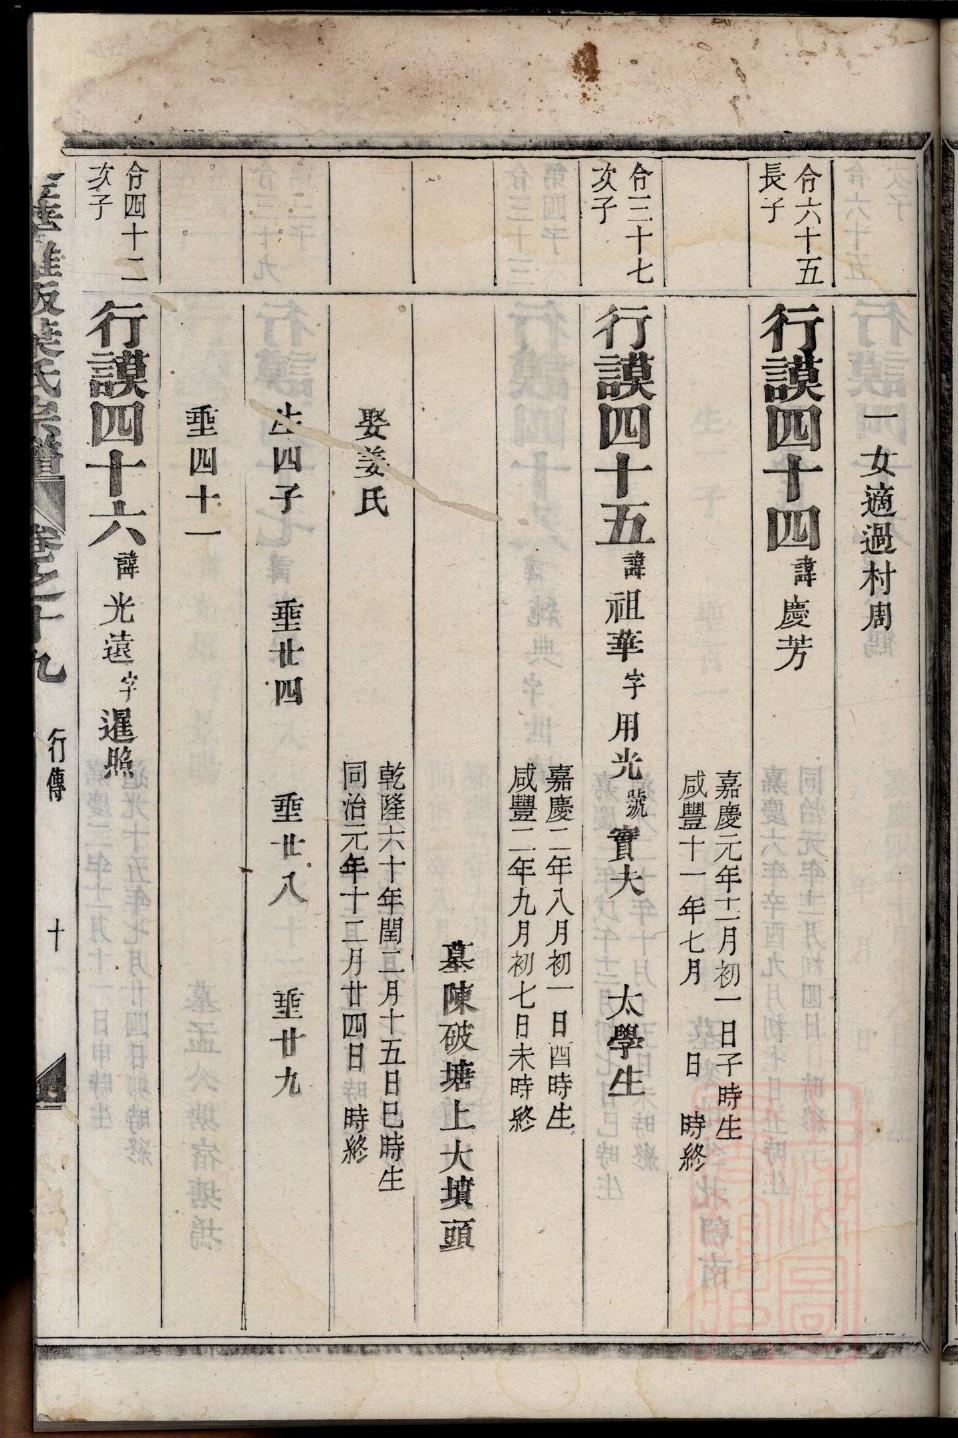 一女適過村周
合六十五
長子
行謨四十四諱慶芳
嘉慶元年十二月初一日子時生
咸豐十一年七月 日 時終
合三十七
次子
行謨四十五諱祖華字用光號實大 太學生
嘉慶二年八月初一日酉時生
咸豐二年九月初七日未時終
墓陳破塘上大墳頭
娶姜氏
乾隆六十年閏二月十五日巳時生
同治元年十二月廿四日 時終
生四子 垂廿四 垂廿八 垂廿九
垂四十一
合四十二
次子
行謨四十六諱光遠字暹煦
葉氏宗譜 卷之十九 行傳 十